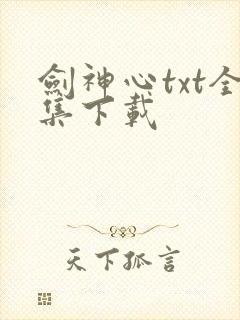 劍神心txt全
集下載
天下孤言